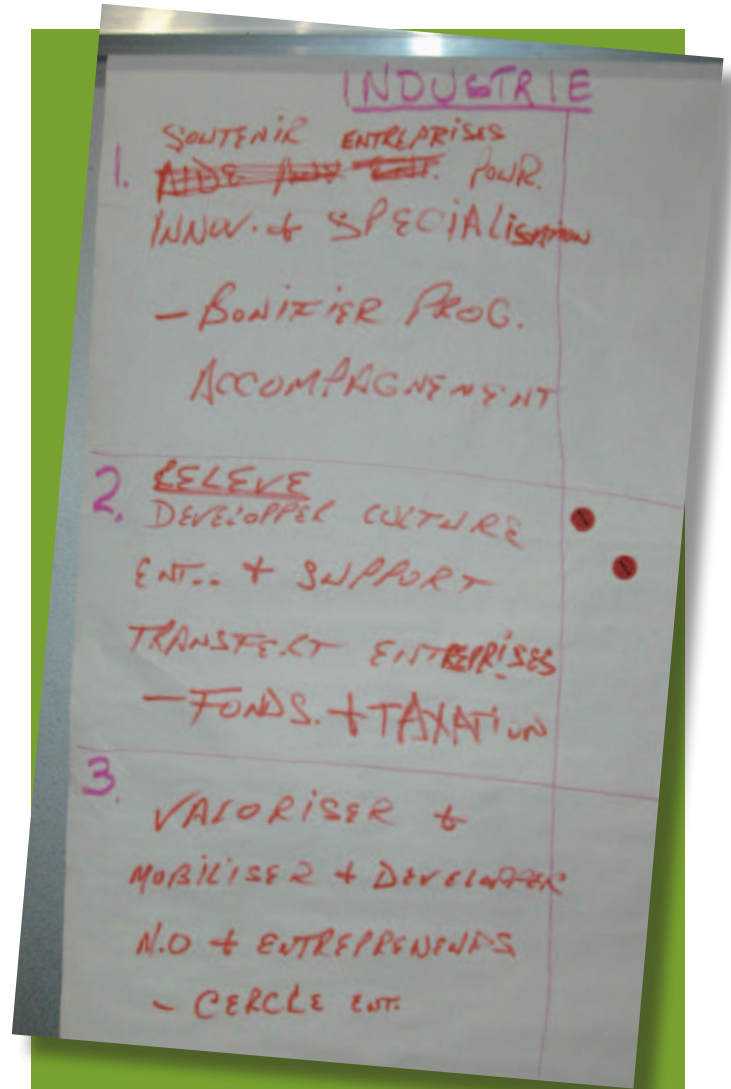 INDUSTRIE
1. SOUTENIR ENTREPRISES
AIDE AUX ENT. POUR.
INNOV. + SPECIALISATION
- BONIFIER PROG.
ACCOMPAGNEMENT
2. RELEVE
DEVELOPPER CULTURE
ENT.. + SUPPORT
TRANSFERT ENTREPRISES
- FONDS. + TAXATION
3.
VALORISER +
MOBILISER + DEVELOPPER
M.O + ENTREPRENEURS
- CERCLE ENT.